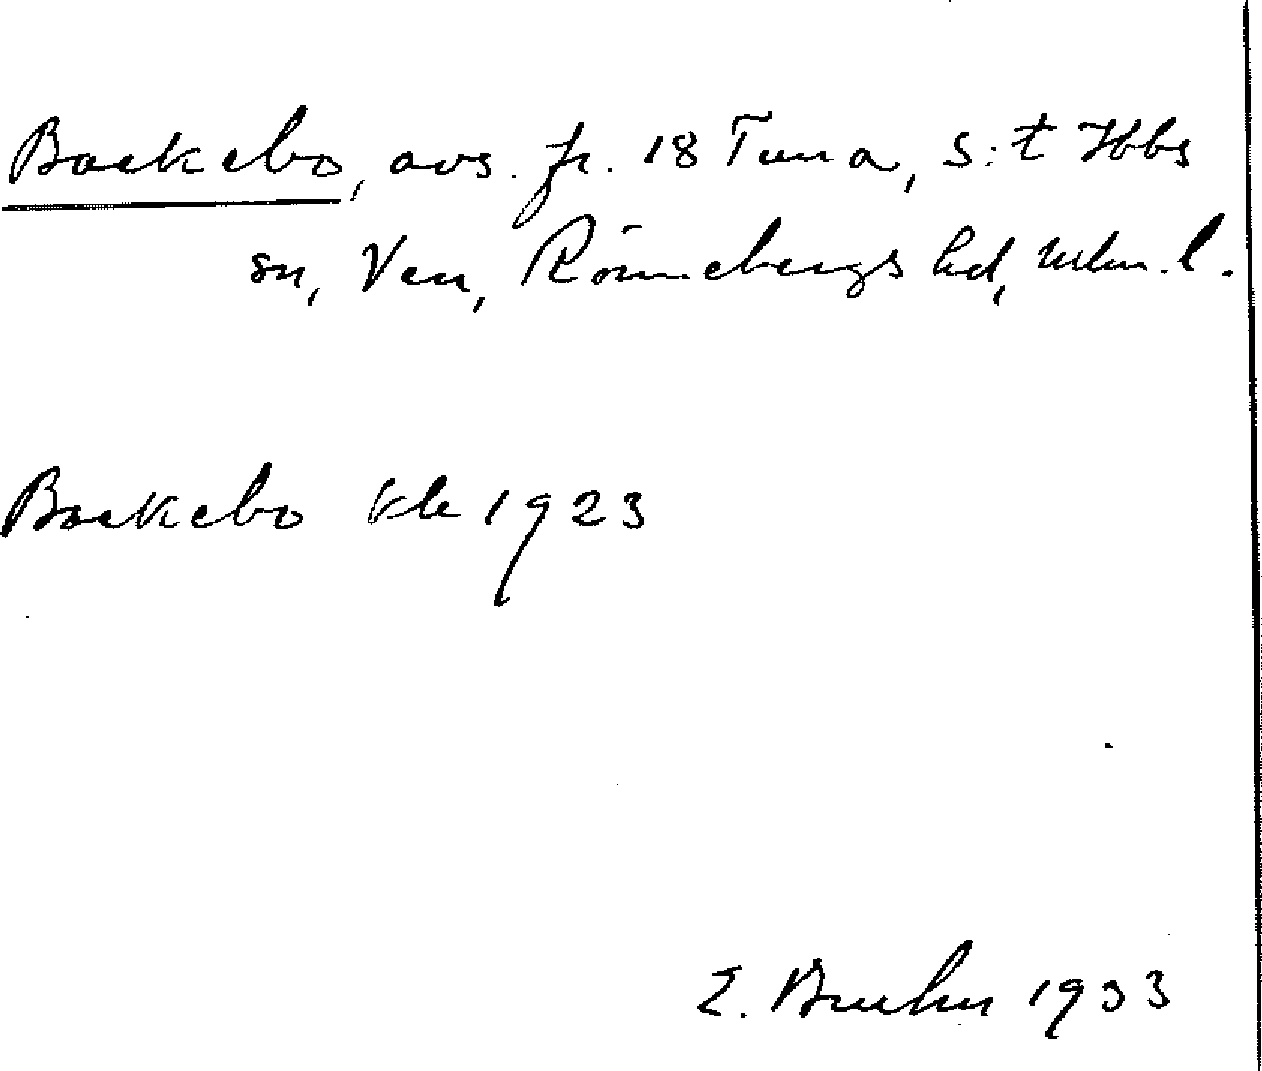 Backebo, avs. fr. 18 Tuna, S:t Ibbs
sn, Ven, Rönnebergs hd, Mlm. l.
Backebo kb 1923
E. Bruhn 1933